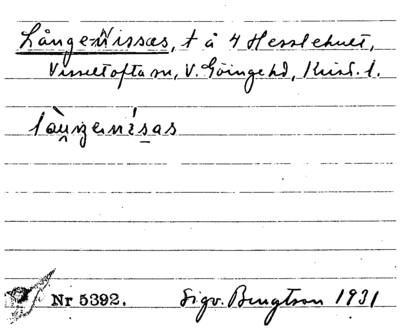 Långe-Nissas, t å 4 Hesslehult,
Visseltofta sn, V. Göinge hd, Krist. l.
làu̯ŋenísas
Nr 5392. Sigv. Bengtson 1931